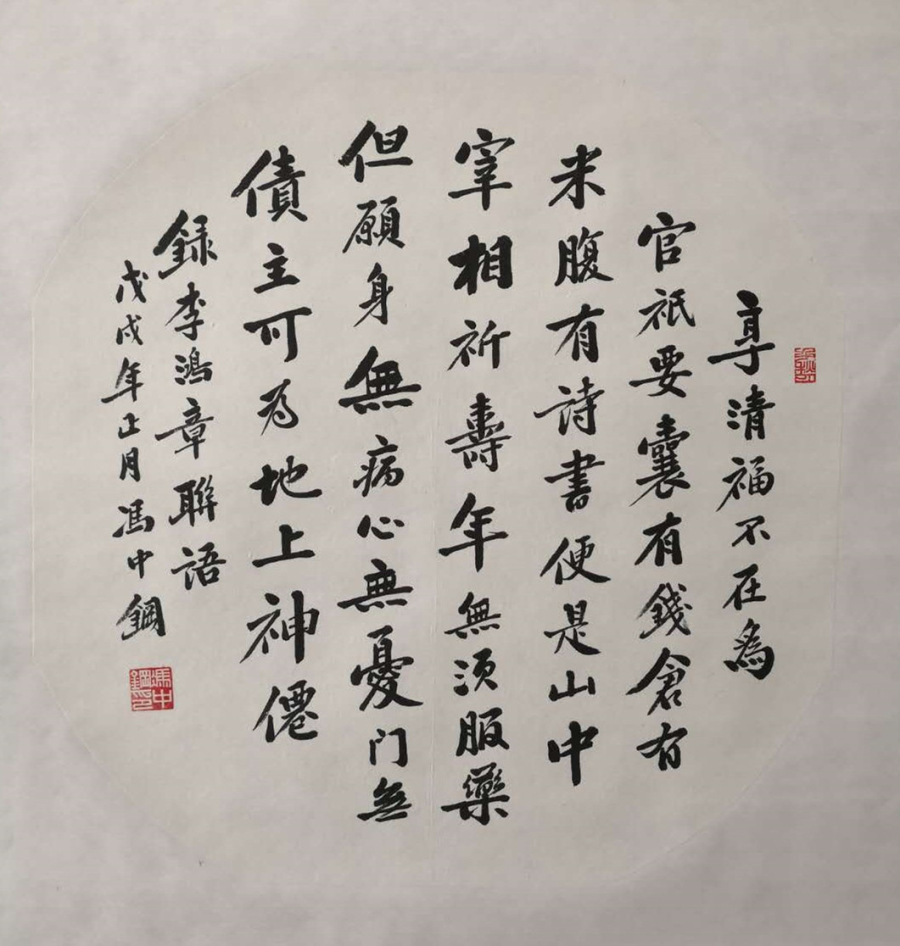 享清福不在為
官祇要囊有錢倉有
米腹有詩書便是山中
宰相祈壽年無須服藥
但願身無病心無憂門無
債主可為地上神僊
録李鴻章聯語
戊戌年正月馮中鋼
馮中鋼印